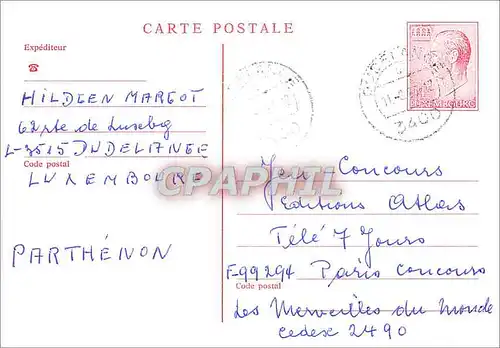 CARTE POSTALE
Expéditeur
HILDGEN MARGOT
62 rte de Luxebg
L-3515 DUDELANGE
Code postal
LUXEMBOURG
PARTHÉNON
LUXEMBOURG
3400
CPAPHIL
Jeu-Concours
Editions Atlas
Télé 7 Jours
F-99294 Paris Concours
Code postal
Les Merveilles du Monde
Cedex 2490